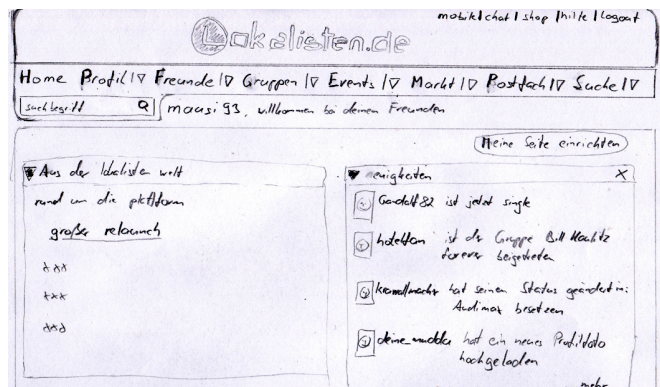 mobil | chat | shop | hilfe | Logout
Lokalisten.de
Home Profil | ▽ Freunde | ▽ Gruppen | ▽ Events | ▽ Markt | ▽ Postfach | ▽ Suche | ▽
suchbegriff
mausi93, willkommen bei deinen Freunden
Meine Seite einrichten
▼ Aus der lokalisten welt
rund um die plattform
großer relaunch
xxx
xxx
xxx
▼ neuigkeiten X
Gandalf82 ist jetzt single
ist der Gruppe Bill Kaulitz
forever beigetreten
hat seinen Status geändert in:
Audimax besetzen
deine_mudda hat ein neues Profilfoto
hochgeladen
mehr